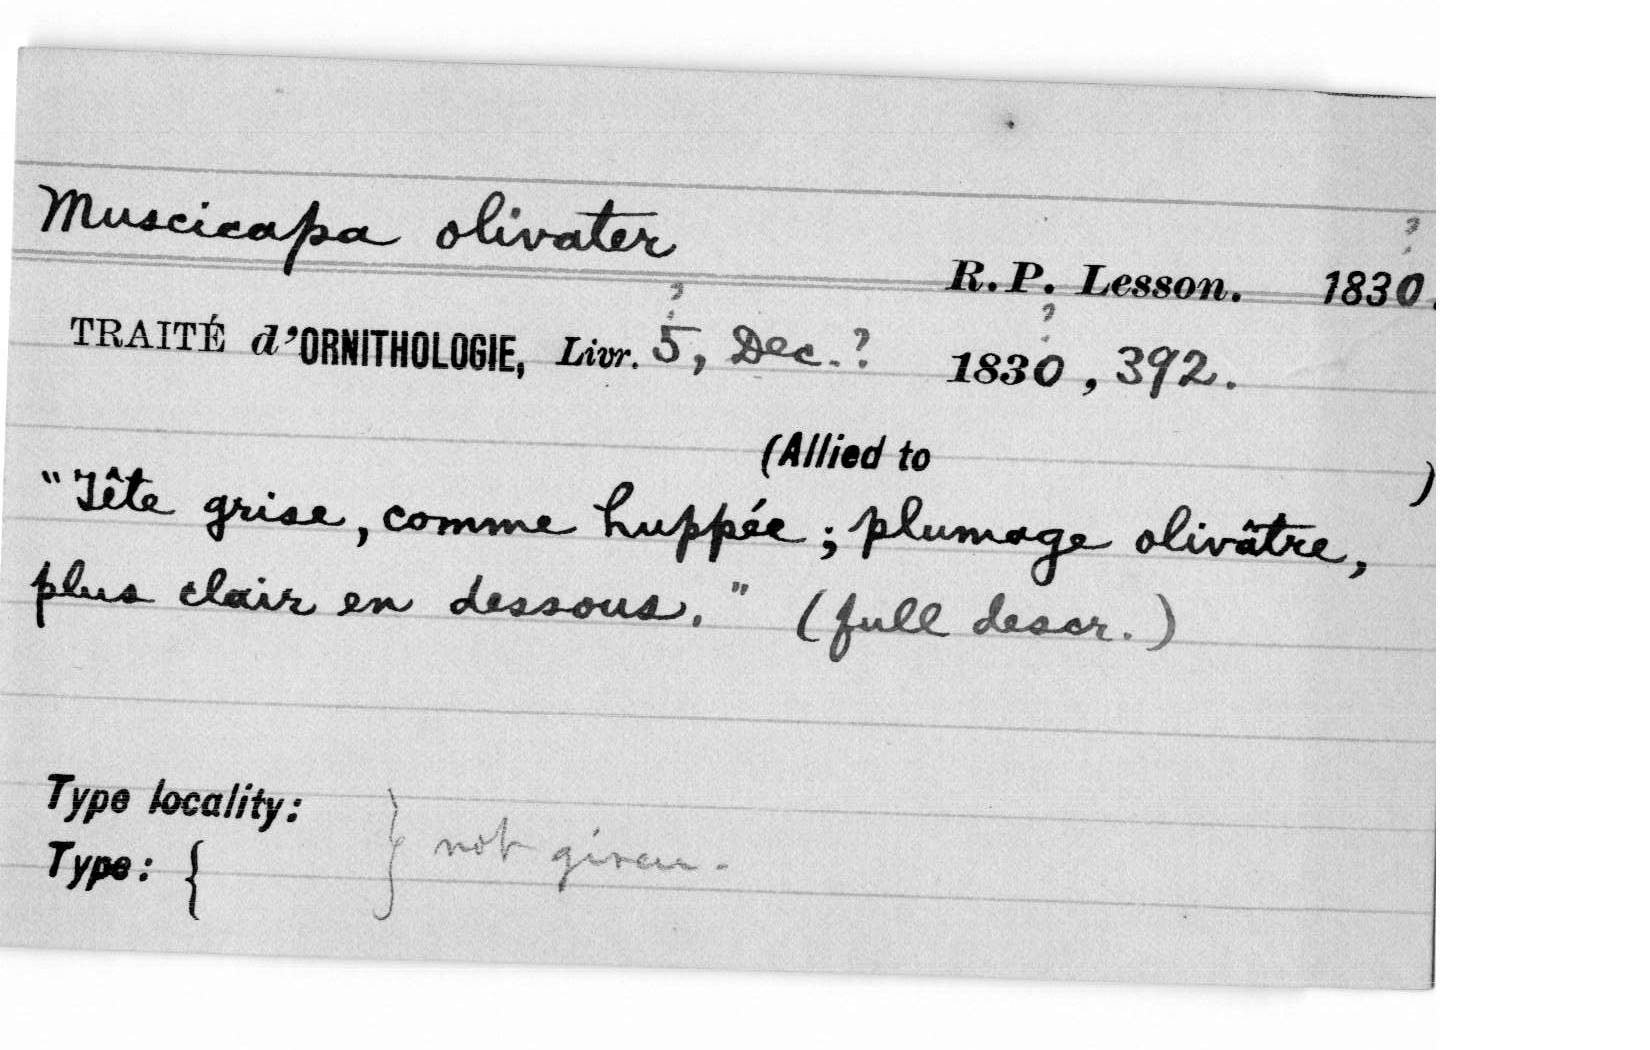 Muscicapa olivater
?
R.P. Lesson. 1830.
? ?
TRAITÉ d'ORNITHOLOGIE, Livr. 5, Dec.? 1830, 392.
(Allied to )
"Tête grise, comme huppée; plumage olivâtre,
plus clair en dessous." (full descr.)
Type locality:
Type: { } not given.